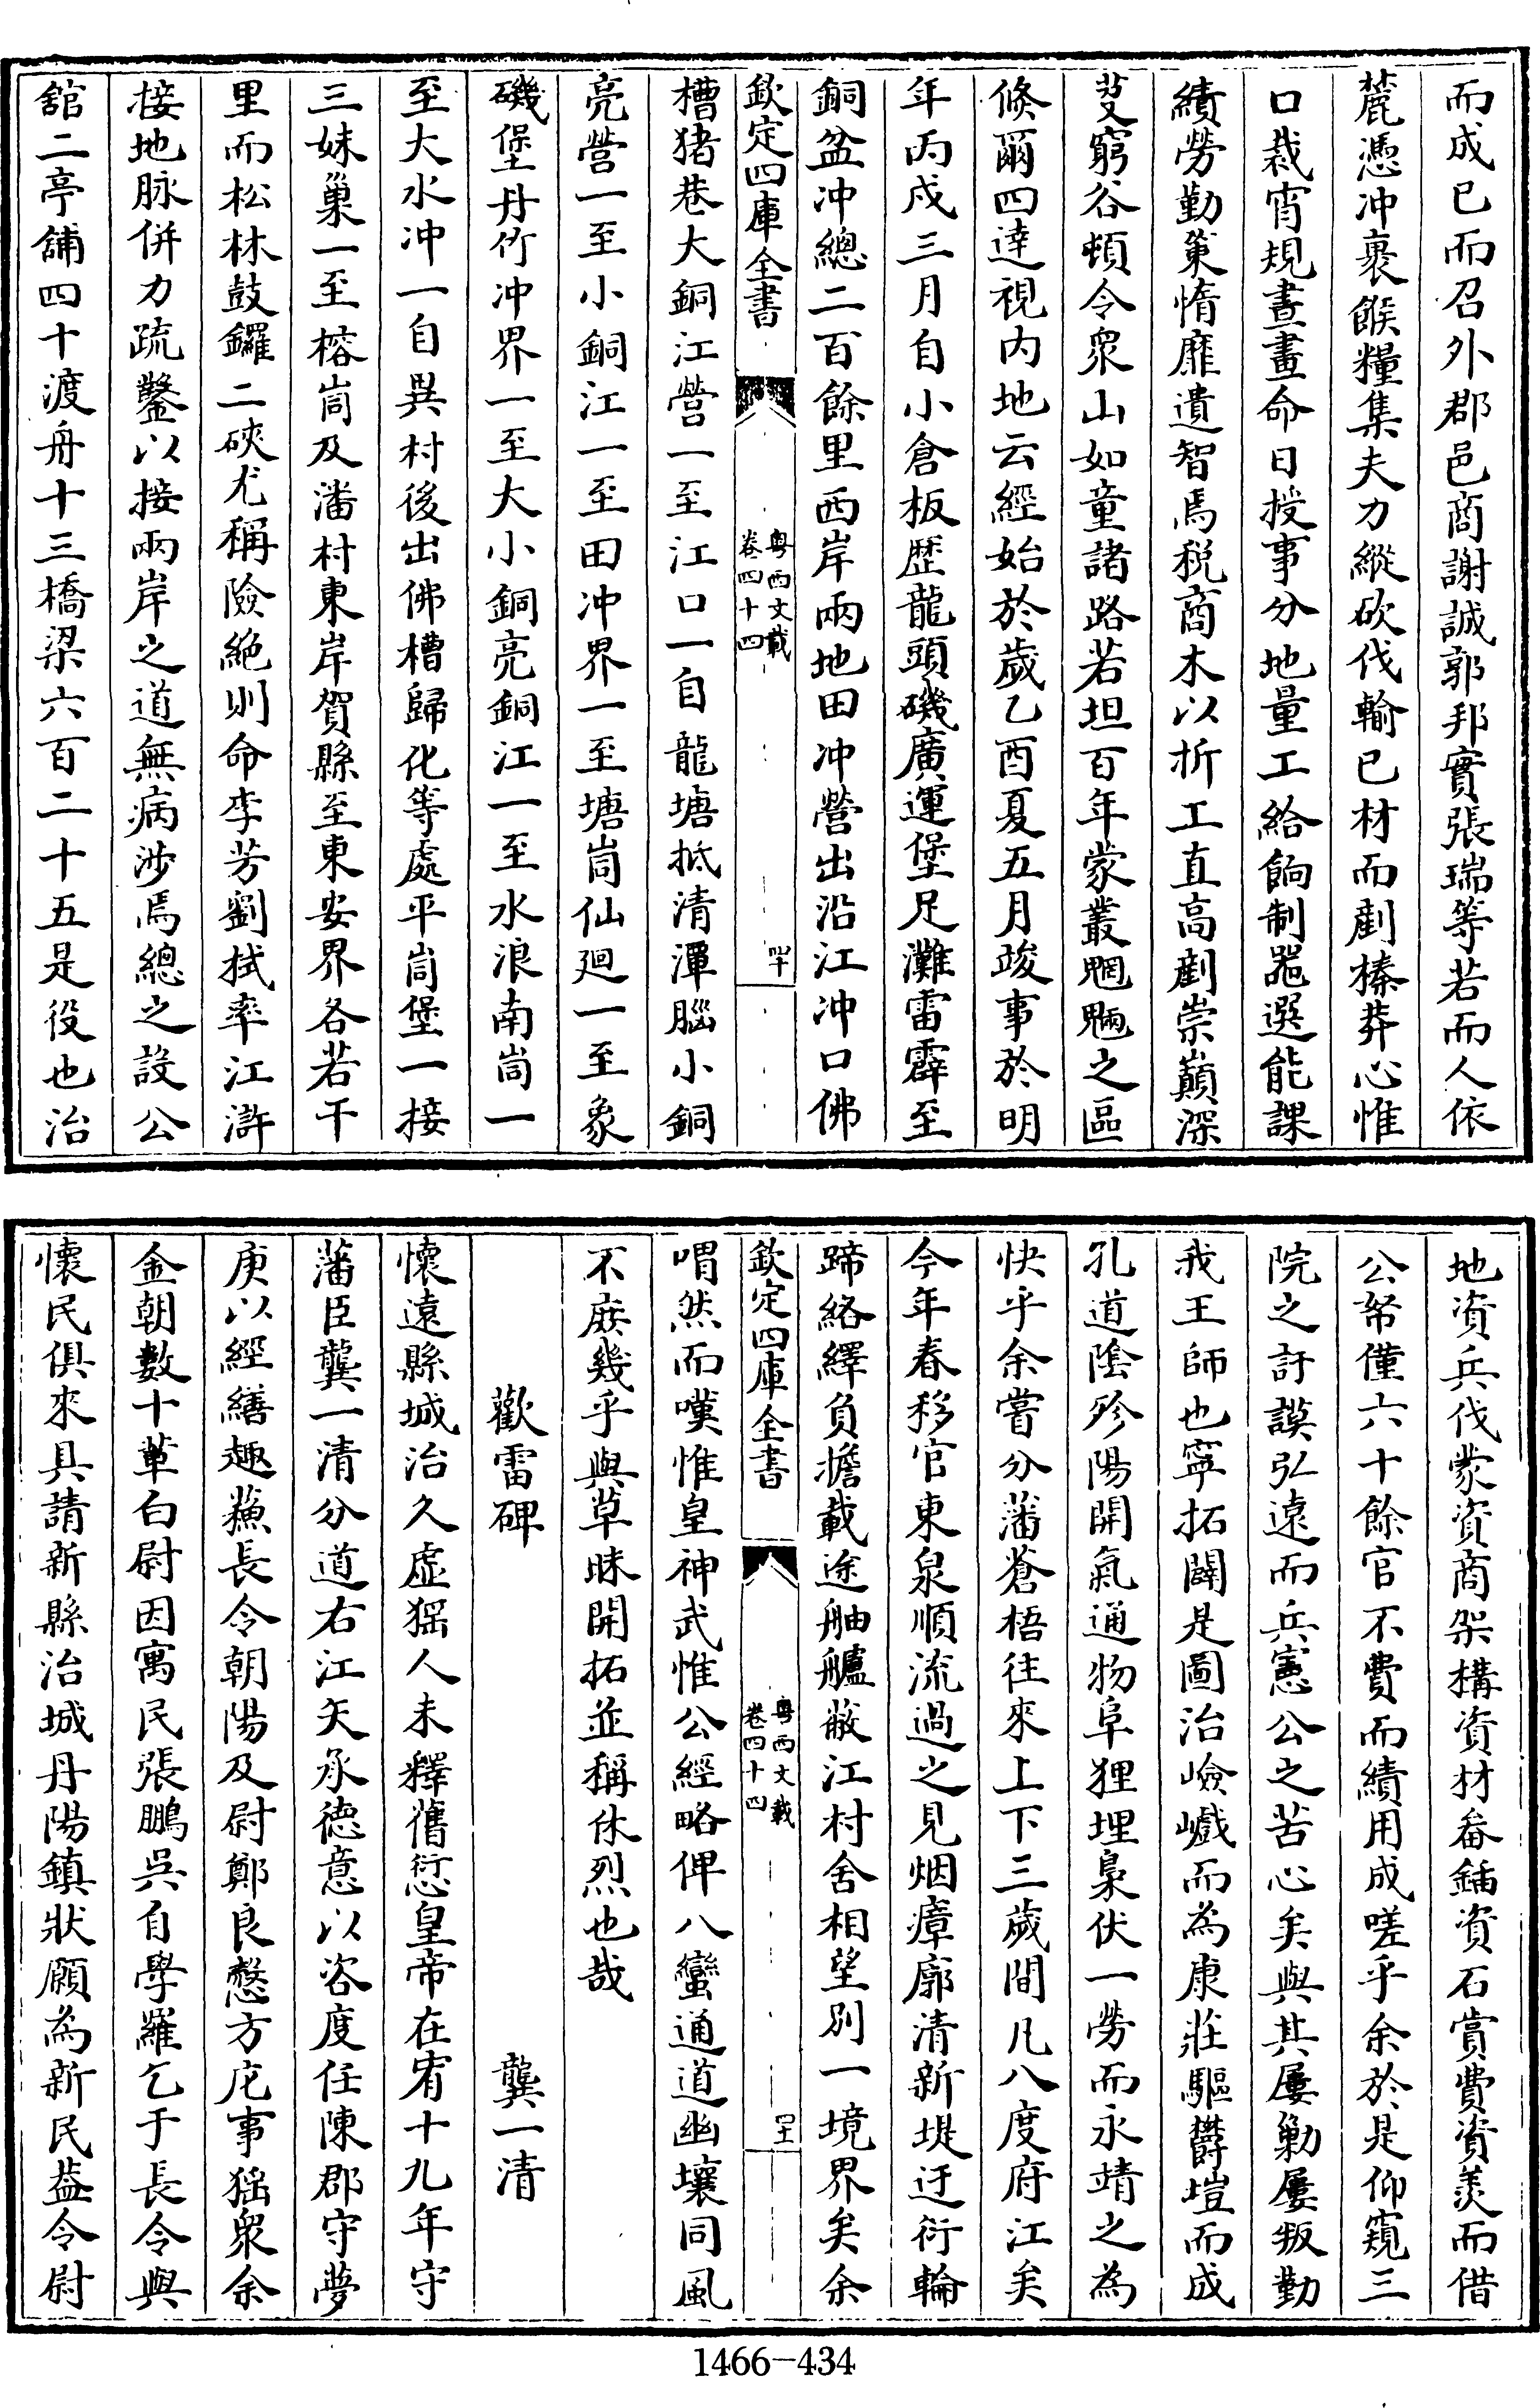 而成已而召外郡邑商謝誠郭邦實張瑞等若而人依
麓憑冲裹餱糧集夫力縱砍伐輸已材而剷榛莽心惟
口裁宵規晝畫命日授事分地量工給餉制噐選能課
績勞勤策惰靡遺智焉税商木以折工直高剷崇巔深
芟窮谷頓令衆山如童諸路若坦百年蒙叢魍魎之區
倏爾四逹視内地云經始於歲乙酉夏五月竣事於明
年丙戍三月自小倉板歴龍頭磯廣運堡足灘雷霹至
銅盆冲總二百餘里西岸兩地田冲營出沿江冲口佛
欽定四庫全書
粤西文載
卷四十四
四十
槽猪巷大銅江營一至江口一自龍塘抵清潭腦小銅
亮營一至小銅江一至田冲界一至塘峝仙廻一至象
磯堡丹竹冲界一至大小銅亮銅江一至水浪南峝一
至大水冲一自異村後出佛槽歸化等處平峝堡一接
三妹巢一至榕峝及潘村東岸賀縣至東安界各若干
里而松林鼓鑼二硤尤稱險絶則命李芳劉拭率江滸
接地脉併力疏鑿以接兩岸之道無病涉焉總之設公
舘二亭舖四十渡舟十三橋梁六百二十五是役也治
地資兵伐蒙資商架構資材畚鍤資石賞費資羨而借
公帑僅六十餘官不費而績用成嗟乎余於是仰窺三
院之訏謨弘遠而兵憲公之苦心矣與其屢勦屢叛勤
我王師也寧拓闢是圖治嶮巇而為康莊驅欝塏而成
孔道陰殄陽開氣通物阜狸埋梟伏一勞而永靖之為
快乎余嘗分藩蒼梧往來上下三歲間凡八度府江矣
今年春移官東泉順流過之見烟瘴廓清新堤迂衍輪
蹄絡繹負擔載途舳艫蔽江村舍相望别一境界矣余
欽定四庫全書
粤西文載
卷四十四
四十一
喟然而嘆惟皇神武惟公經略俾八蠻通道幽壤同風
不庶幾乎與草昧開拓並稱休烈也哉
歡雷碑 龔一清
懷遠縣城治久虛猺人未釋舊愆皇帝在宥十九年守
藩臣龔一清分道右江矢承德意以咨度任陳郡守夢
庚以經繕趣蘓長令朝陽及尉鄭良慤方庀事猺衆余
金朝數十軰白尉因寓民張鵬吳自學羅乞于長令與
懷民俱來具請新縣治城丹陽鎮狀願為新民益令尉
1466-434